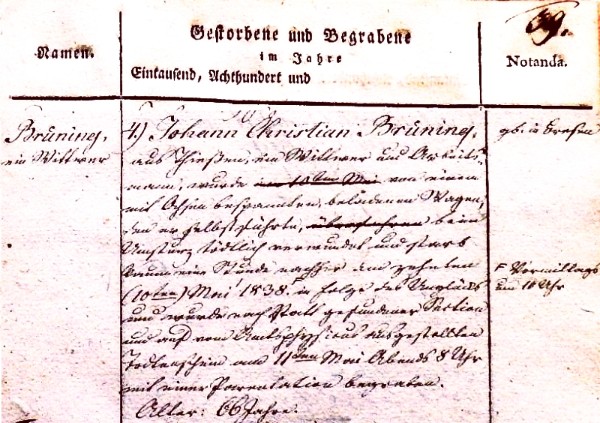 39.
Namen.
Gestorbene und Begrabene
im Jahre
Eintausend, Achthundert und
Notanda.
Brüning,
ein Wittwer
4.) Johann Christian Brüning,
aus Thießen, ein Wittwer und Arbeits-
mann, wurde am 10ten Mai von einem
mit Ochsen bespannten, beladenen Wagen,
den er selbst führte, überfahren beim
Umsturz tödtlich verwundet und starb
kaum eine Stunde nachher am zehnten
(10ten) Mai 1838 in Folge des Unglücks
und wurde nach Statt gefundener Section
und auf vom Amtsphysicus ausgestellten
Todtenschein am 11ten Mai Abends 8 Uhr
mit einer Parentation begraben.
Alter: 66 Jahre.
gb. in
Vormittags
um 10 Uhr